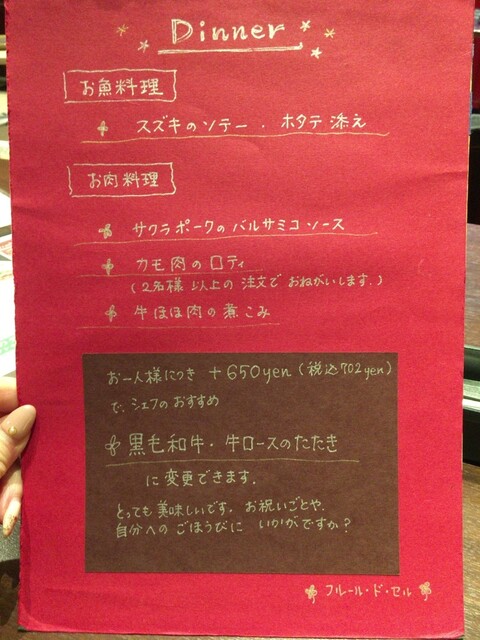 Dinner
お魚料理
スズキのソテー・ホタテ添え
お肉料理
サクラポークのバルサミコソース
カモ肉のロティ
(2名様以上の注文でおねがいします.)
牛ほほ肉の煮こみ
お一人様につき +650yen (税込702yen)
で、シェフのおすすめ
黒毛和牛・牛ロースのたたき
に変更できます.
とっても美味しいです. お祝いごとや.
自分へのごほうびにいかがですか?
フルール・ド・セル